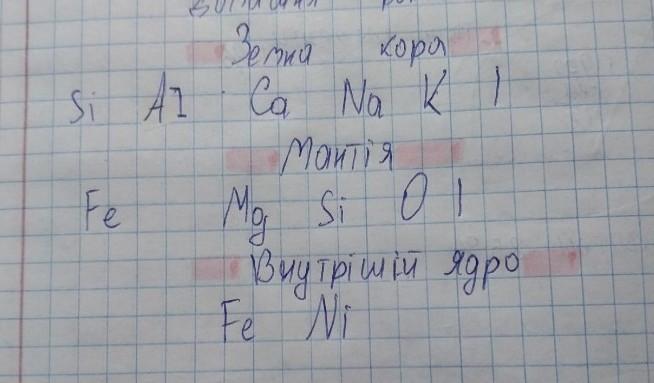 Земна кора
Si Al Ca Na K I
Мантія
Fe Mg Si O I
Внутрішій ядро
Fe Ni